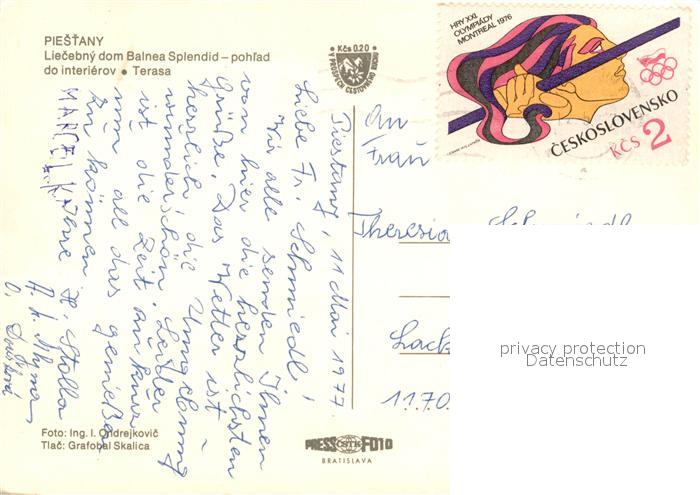 PIEŠŤANY
Liečebný dom Balnea Splendid – pohľad
do interiérov • Terasa
Kčs 0.20
V PREDAJI CESTOVNÉHO RUCHU
HRY XXI.
OLYMPIÁDY
MONTREAL 1976
ČESKOSLOVENSKO
KČS 2
Piestany, 11 Mai 1977
Liebe Fr. Schmiedl!
Wir alle senden Ihnen
von hier die herzlichsten
Grüße. Das Wetter ist
herrlich die Umgebung
wunderschön. Leider
ist die Zeit zu kurz
um all das genießen
zu können. Ihre H. Stolla
MARCEL K.
An
Frau
Theresia Schmiedl
Lack
11.70
Foto: Ing. I. Ondrejkovič
Tlač: Grafobal Skalica
PRESS ČSTK FOTO
BRATISLAVA
privacy protection
Datenschutz